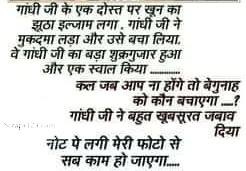 गांधी जी के एक दोस्त पर खून का
झूठा इल्जाम लगा . गांधी जी ने
मुकदमा लड़ा और उसे बचा लिया.
वे गांधी जी का बड़ा शुक्रगुजार हुआ
और एक स्वाल किया ............
कल जब आप ना होंगे तो बेगुनाह
को कौन बचाएगा ....?
गांधी जी ने बहुत खूबसूरत जबाव
दिया
नोट पे लगी मेरी फोटो से
सब काम हो जाएगा.....